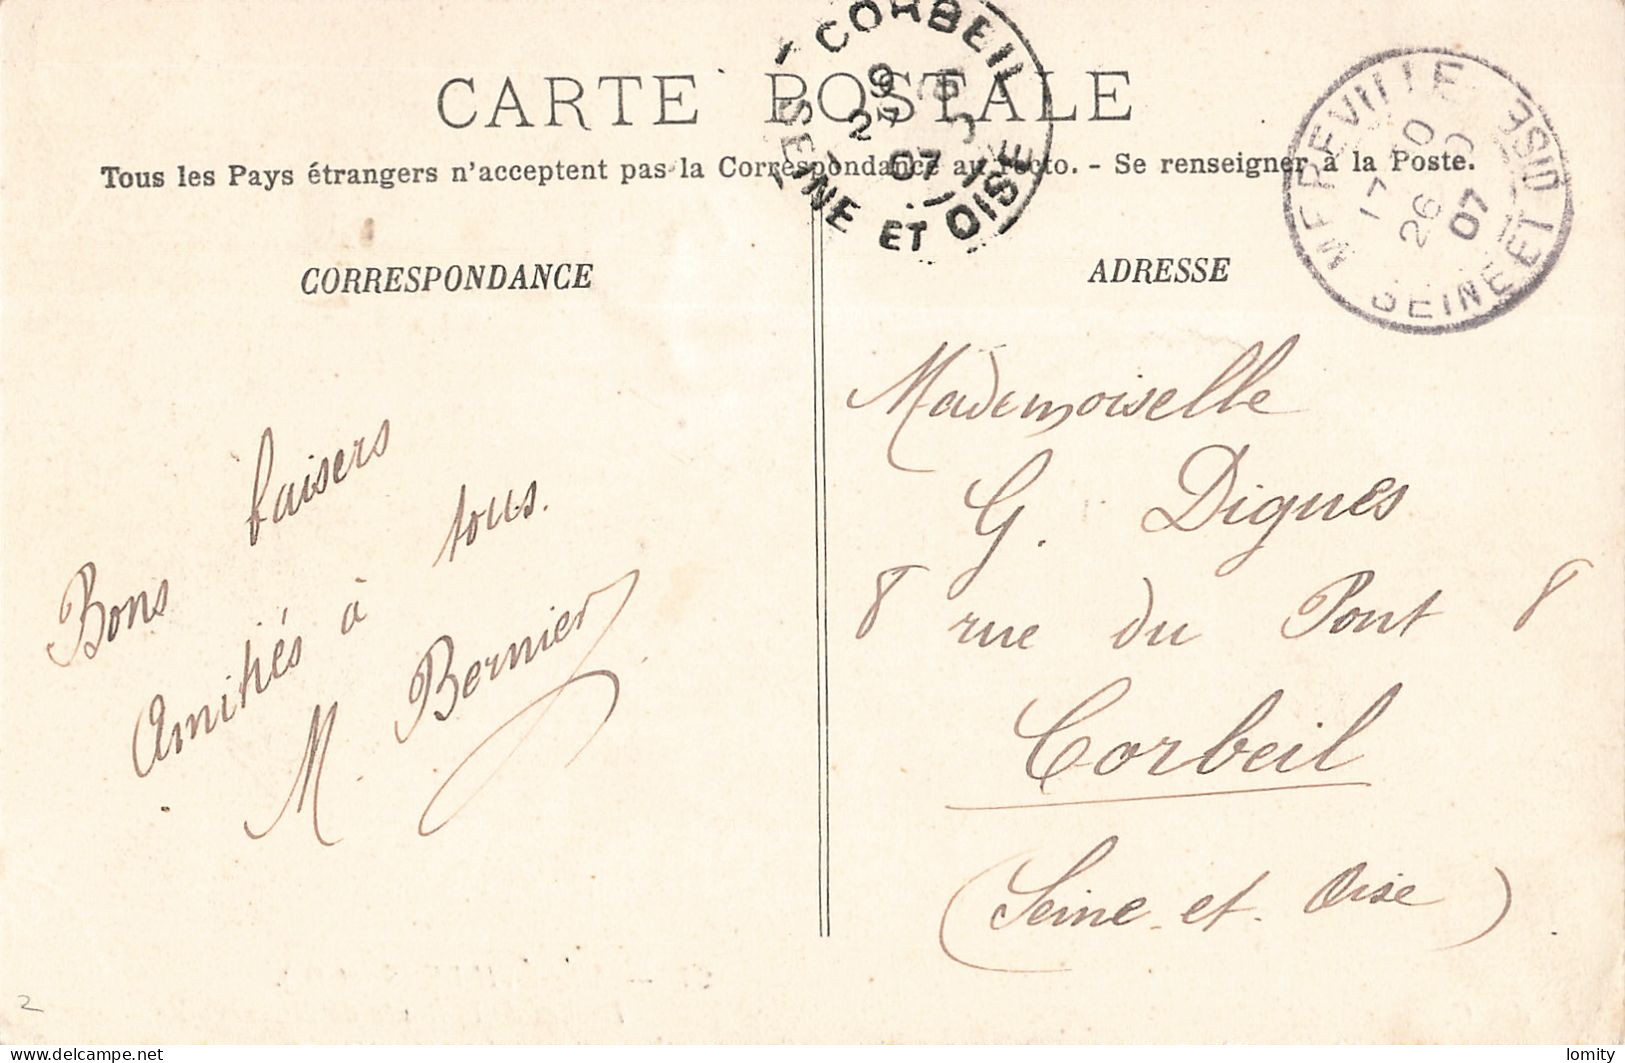 CARTE POSTALE
Tous les Pays étrangers n'acceptent pas la Correspondance au recto. - Se renseigner à la Poste.
CORBEIL
SEINE ET OISE
07
MEREVILLE
SEINE ET OISE
17
26
07
CORRESPONDANCE
Bons baisers
Amitiés à tous.
M. Bernier
ADRESSE
Mademoiselle
G. Digues
8 rue du Pont 8
Corbeil
(Seine et Oise)
2
delcampe.net
lomity